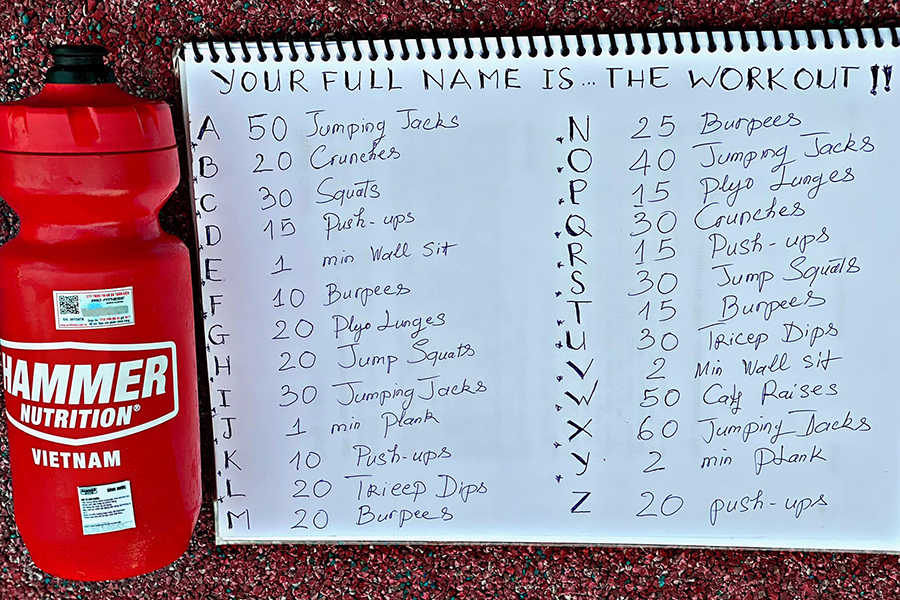 YOUR FULL NAME IS... THE WORKOUT !!
A 50 Jumping Jacks
B 20 Crunches
C 30 Squats
D 15 Push-ups
E 1 min Wall Sit
F 10 Burpees
G 20 Plyo Lunges
H 20 Jump Squats
I 30 Jumping Jacks
J 1 min Plank
K 10 Push-ups
L 20 Tricep Dips
M 20 Burpees
N 25 Burpees
O 40 Jumping Jacks
P 15 Plyo Lunges
Q 30 Crunches
R 15 Push-ups
S 30 Jump Squats
T 15 Burpees
U 30 Tricep Dips
V 2 Min Wall Sit
W 50 Calf Raises
X 60 Jumping Jacks
Y 2 min Plank
Z 20 push-ups
PRO-FITNESS
HAMMER
NUTRITION®
VIETNAM
HAMMER